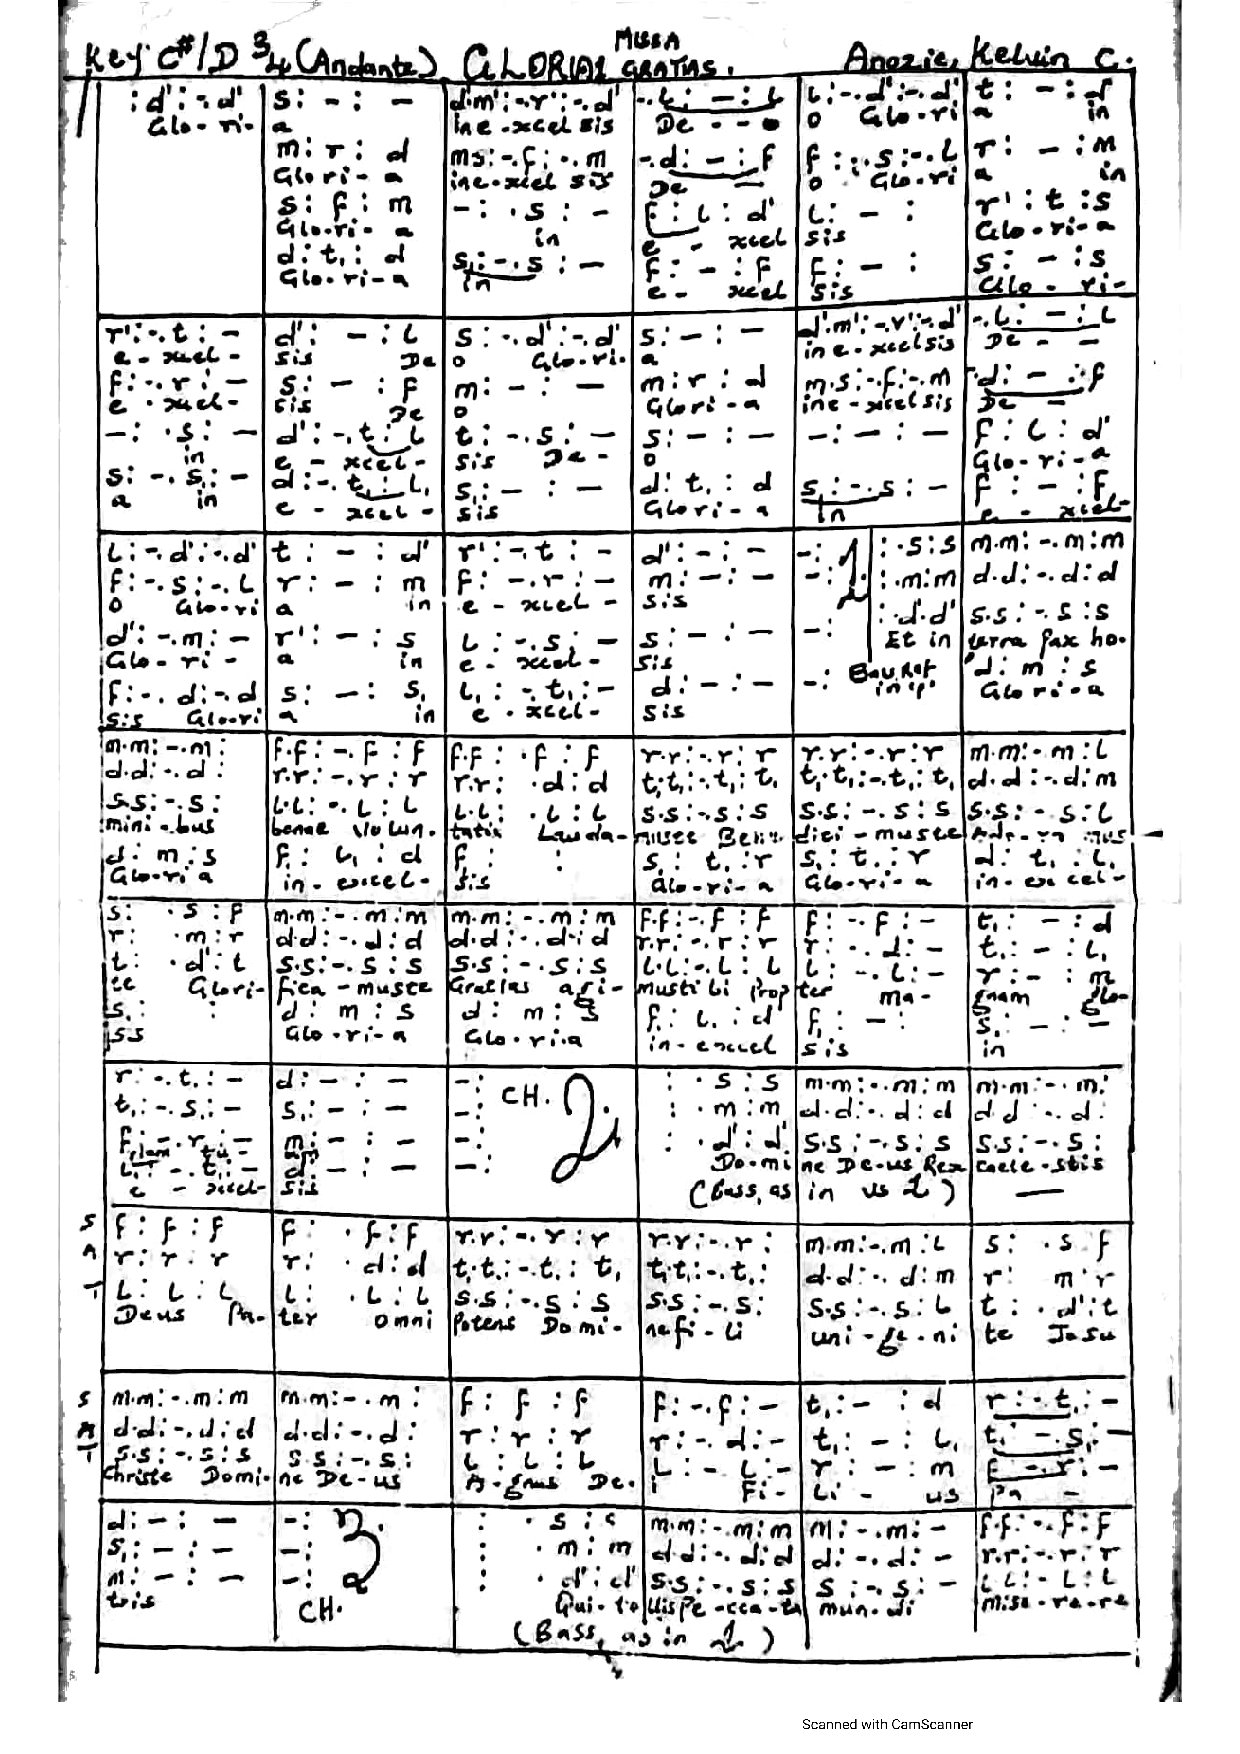 Key C#/D 3/4 (Andante) GLORIA! MISSA GRATIAS. Anozie, Kelvin C.
: d' : -. d' | s : - : - | d'.m' : -.r' : -.d' | -. l : - : l | l : -. d' : -. d' | t : - : d'
Glo - ri - | a | in e - xcel sis | De - - | o Glo - ri | a in
m : r : d | m s : -. f : -. m | -. d : - : f | f : . s : -. l | r : - : m
Glo ri - a | in e - xcel sis | De - | o Glo - ri | a in
s : f : m | - : . s : - | f : l : d' | l : - : | r' : t : s
Glo - ri - a | in | e - xcel | sis | Glo - ri - a
d : t, : d | s, : -. s : - | f : - : f | f : - : | s : - : s
Glo - ri - a | in | e - xcel | sis | Glo - ri -
r' : -. t : - | d' : - : l | s : -. d' : -. d' | s : - : - | d'.m' : -.r' : -.d' | -. l : - : l
e - xcel - | sis De | o Glo - ri - | a | in e - xcelsis | De - -
f : -. r : - | s : - : f | m : - : - | m : r : d | m.s : -. f : -. m | d : - : f
e - xcel - | sis De | o | Glori - a | in e - xcelsis | De -
- : . s : - | d' : -. t : l | t : -. s : - | s : - : - | - : - : - | f : l : d'
in | e - xcel - | sis De - | o | Glo - ri - a
s : -. s, : - | d : -. t, : l, | s, : - : - | d : t, : d | s, : -. s : - | f : - : f
a in | e - xcel - | sis | Glori - a | in | e - xcel -
l : -. d' : -. d' | t : - : d' | r' : -. t : - | d' : - : - | - : 1 : . s : s | m.m : -. m : m
f : -. s : -. l | r : - : m | f : -. r : - | m : - : - | - : : . m : m | d.d : -. d : d
o Glo - ri | a in | e - xcel - | sis | : . d' : d' | s.s : -. s : s
d' : -. m : - | r' : - : s | l : -. s : - | s : - : - | - : Et in | terra pax ho -
Glo - ri - | a in | e - xcel - | sis | d : m : s
f : -. d : -. d | s : - : s, | l, : -. t, : - | d : - : - | - : | Glori - a
sis Glo - ri | a in | e - xcel - | sis
m.m : -. m : | f.f : -. f : f | f.f : . f : f | r.r : -. r : r | r.r : -. r : r | m.m : -. m : l
d.d : -. d : | r.r : -. r : r | r.r : . d : d | t,.t, : -. t, : t, | t,.t, : -. t, : t, | d.d : -. d : m
s.s : -. s : | l.l : -. l : l | l.l : . l : l | s.s : -. s : s | s.s : -. s : s | s.s : -. s : l
mini - bus | bonae Volun - | tatis Lauda - | muste Bene | dici - muste | Ado - ra mus
d : m : s | f : l, : d | f : : | s, : t, : r | s, : t, : r | d : t, : l,
Glo - ri a | in - excel - | sis | Glo - ri - a | Glo - ri - a | in - ex cel -
s : . s : f | m.m : -. m : m | m.m : -. m : m | f.f : -. f : f | f : -. f : - | t, : - : d
r : . m : r | d.d : -. d : d | d.d : -. d : d | r.r : -. r : r | r : -. d : - | t, : - : l,
t : . d' : t | s.s : -. s : s | s.s : -. s : s | l.l : -. l : l | l : -. l : - | r : - : m
te Glori - | fica - muste | Gratias agi - | mustibi Prop | ter ma - | gnam glo -
s, : : | d : m : s | d : m : s | f : l, : d | f, : - : | s, : - : -
sis | Glo - ri - a | Glo - ri a | in - excel | sis | in
r : -. t, : - | d : - : - | - : CH. 2. | : . s : s | m.m : -. m : m | m.m : -. m :
t, : -. s, : - | s, : - : - | - : | : . m : m | d.d : -. d : d | d d : -. d :
f : -. r : - | m : - : - | - : | : . d' : d' | s.s : -. s : s | s.s : -. s :
riam tu - | - : | Do - mi | ne De - us Rex | Caele - stis
l, : -. t, : - | d : - : -
e - xcel - | sis | (Bass, as in vs 1)
S f : f : f | f : . f : f | r.r : -. r : r | r.r : -. r : | m.m : -. m : l | s : . s f
A r : r : r | r : . d : d | t,.t, : -. t, : t, | t,.t, : -. t, : | d.d : -. d : m | r : m r
T l : l : l | l : . l : l | s.s : -. s : s | s.s : -. s : | s.s : -. s : l | t : . d' : t
Deus Pa - | ter omni | Potens Domi - | ne fi - li | uni - ge - ni | te Jesu
S m.m : -. m : m | m.m : -. m : | f : f : f | f : -. f : - | t, : - : d | r : -. t, : -
A d.d : -. d : d | d.d : -. d : | r : r : r | r : -. d : - | t, : - : l, | t, : -. s, : -
T s.s : -. s : s | s.s : -. s : | l : l : l | l : - l : - | r : - : m | f : -. r : -
Christe Domi - | ne De - us | A - gnus De - | i Fi - | li - us | Pa -
d : - : - | - : 3. | : . s : s | m.m : -. m : m | m : -. m : - | f.f : -. f : f
s, : - : - | - : | : . m : m | d.d : -. d : d | d : -. d : - | r.r : -. r : r
m : - : - | - : | : . d' : d' | s.s : -. s : s | s : -. s : - | l l : - l : l
tris | CH. | Qui - to | llis Pe - cca - ta | mun - di | mise - re - re
(Bass, as in 1)
Scanned with CamScanner